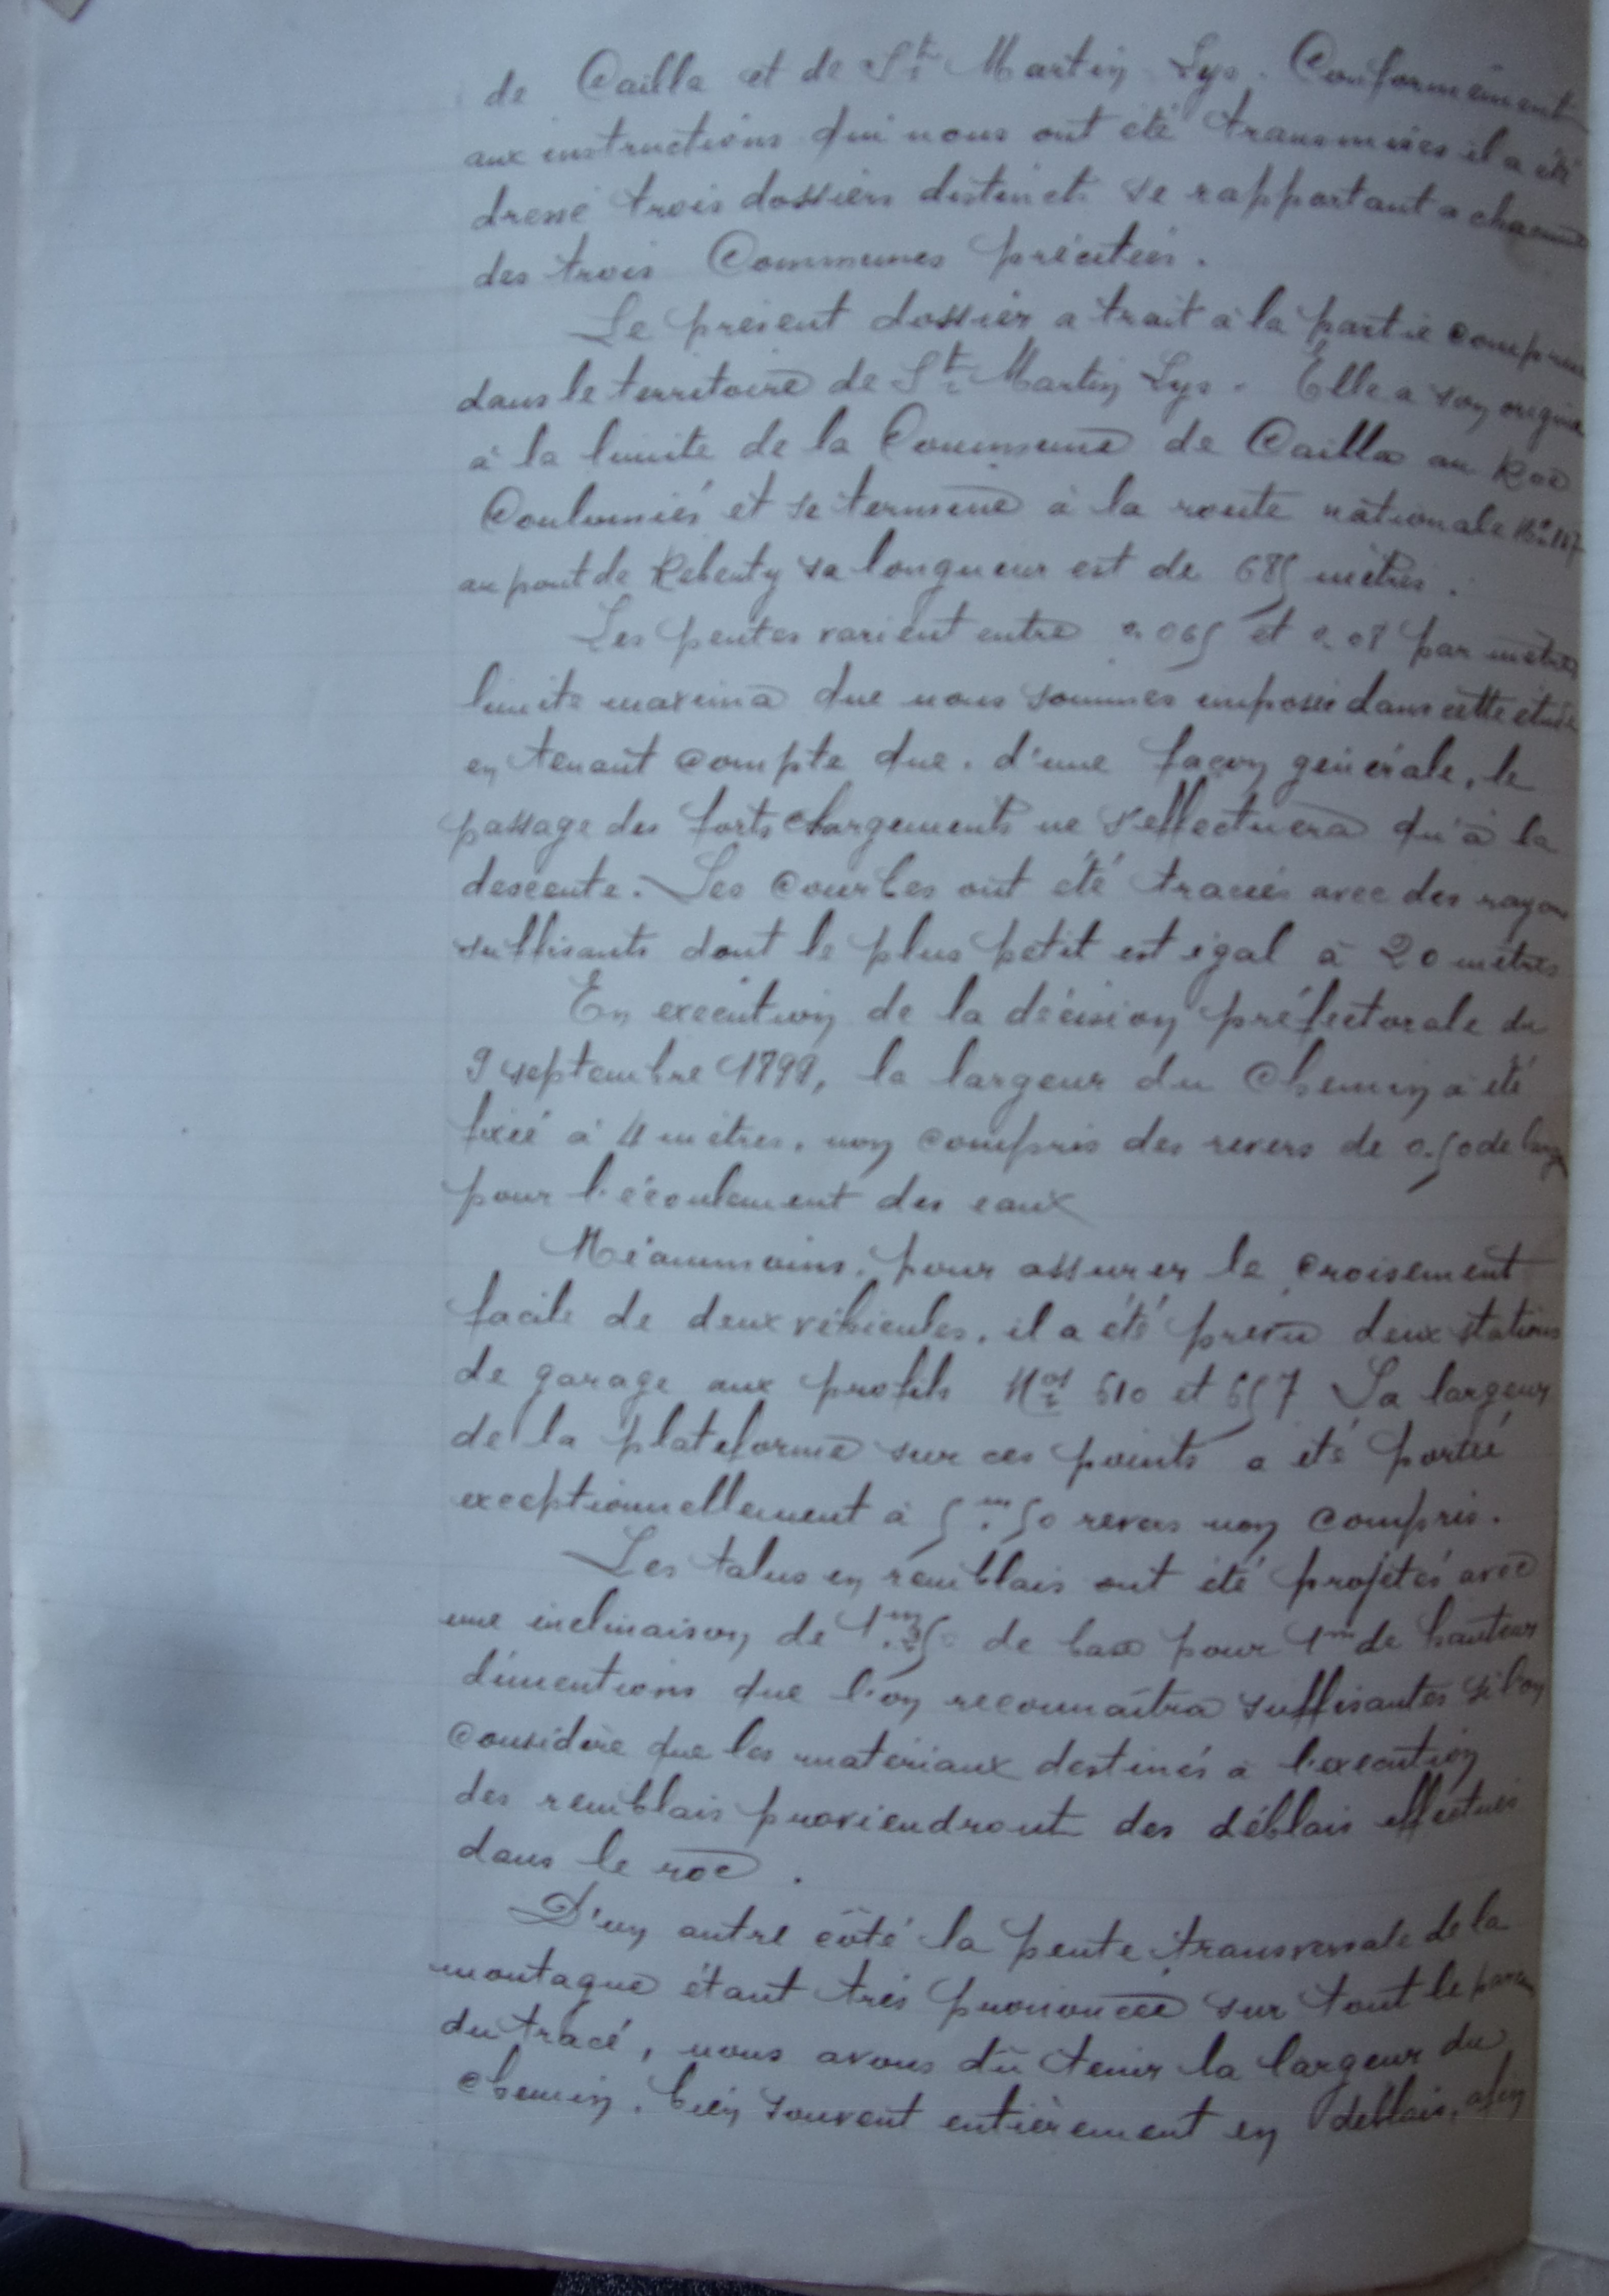 de Cailla et de St Martin Lys. Conformément
aux instructions qui nous ont été transmises il a été
dressé trois dossiers distincts se rapportant a chacune
des trois Communes précitées.
Le présent dossier a trait à la partie comprise
dans le territoire de St Martin Lys. Elle a son origine
à la limite de la Commune de Cailla au Roc
et se termine à la route nationale No 117
au pont de Rebenty sa longueur est de 685 mètres.
Les pentes varient entre 0.065 et 0.08 par mètre
limite maxima que nous sommes imposés dans cette étude
en tenant compte que, d'une façon générale, le
passage des forts chargements ne s'effectuera qu'à la
descente. Les Courbes ont été tracées avec des rayons
suffisants dont le plus petit est égal à 20 mètres
En exécution de la décision préfectorale du
9 septembre 1899, la largeur du Chemin a été
fixée à 4 mètres, non compris des revers de 0.50 de large
pour l'écoulement des eaux
Néanmmoins, pour assurer le croisement
facile de deux véhicules, il a été prévu deux stations
de garage aux profils Nos 610 et 657 La largeur
de la plateforme sur ces points a été portée
exceptionnellement à 5m.50 revers non compris.
Les talus en remblais ont été projetés avec
une inclinaison de de base pour 1m de hauteur
dimentions que l'on reconnaîtra suffisantes si l'on
considère que les matériaux destinés à l'exécution
des remblais proviendront des déblais effectués
dans le roc.
D'un autre côté la pente transversale de la
montagne étant très prononcée sur tout le parcours
du tracé, nous avons dû tenir la largeur du
chemin, bien souvent entièrement en déblais, afin